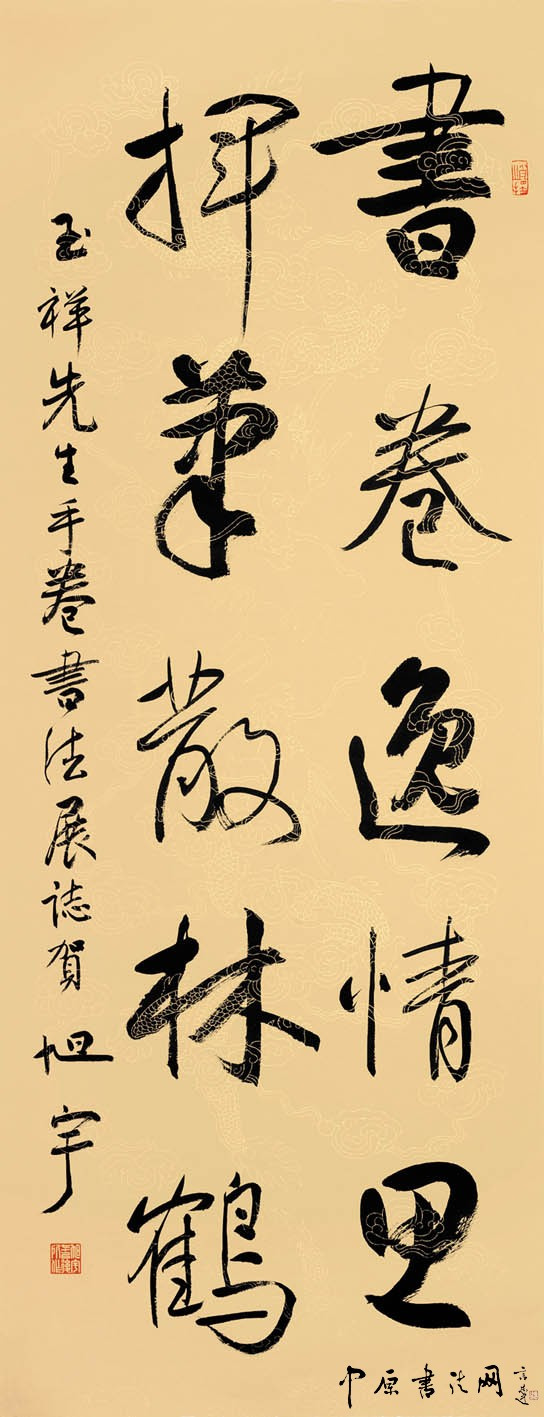 書卷逸情思
揮筆散林鶴
玉祥先生手卷書法展誌賀 旭宇
中原書法网